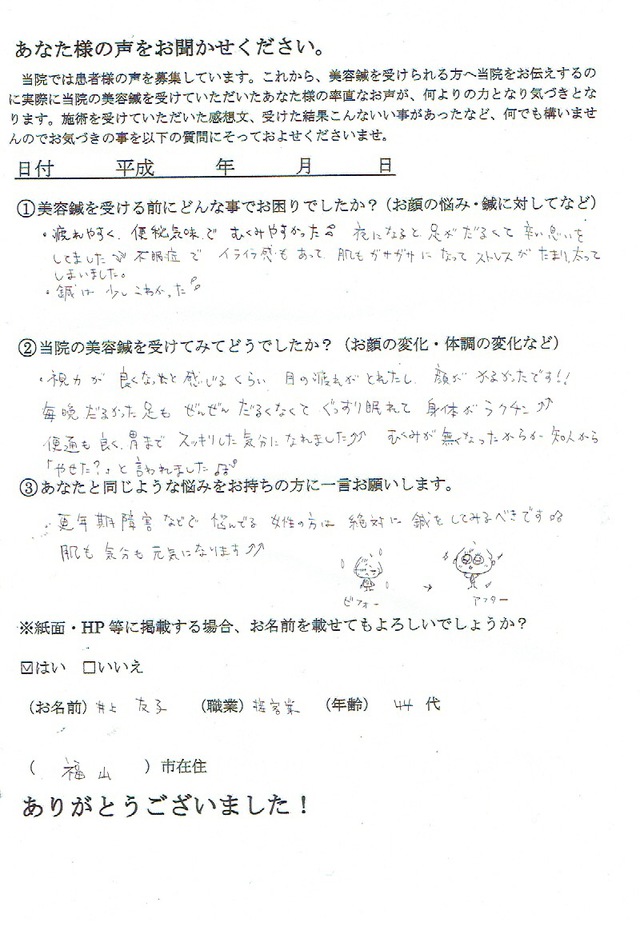 あなた様の声をお聞かせください。
当院では患者様の声を募集しています。これから、美容鍼を受けられる方へ当院をお伝えするの
に実際に当院の美容鍼を受けていただいたあなた様の率直なお声が、何よりの力となり気づきとな
ります。施術を受けていただいた感想文、受けた結果こんないい事があったなど、何でも構いませ
んのでお気づきの事を以下の質問にそっておよせくださいませ。
日付 平成 年 月 日
①美容鍼を受ける前にどんな事でお困りでしたか？（お顔の悩み・鍼に対してなど）
・疲れやすく、便秘気味で むくみやすかった 夜になると足がだるくて 辛い思いを
してました 不眠症で イライラ感もあって 肌もガサガサになって ストレスがたまり、太って
しまいました。
・鍼は少しこわかった
②当院の美容鍼を受けてみてどうでしたか？（お顔の変化・体調の変化など）
・視力が 良くなったと感じるくらい 目の疲れがとれたし、顔が かるかったです!!
毎晩だるかった足も ぜんぜん だるくなくて ぐっすり眠れて 身体がラクチン
便通も良く、胃まで スッキリした気分になれました むくみが無くなったからか 知人から
「やせた?」と言われました
③あなたと同じような悩みをお持ちの方に一言お願いします。
・更年期障害などで 悩んでる 女性の方は 絶対に 鍼をしてみるべきです
肌も気分も元気になります
ビフォー → アフター
※紙面・HP 等に掲載する場合、お名前を載せてもよろしいでしょうか？
☑はい □いいえ
（お名前）井上 友子 （職業）接客業 （年齢） 44 代
（ 福山 ）市在住
ありがとうございました！